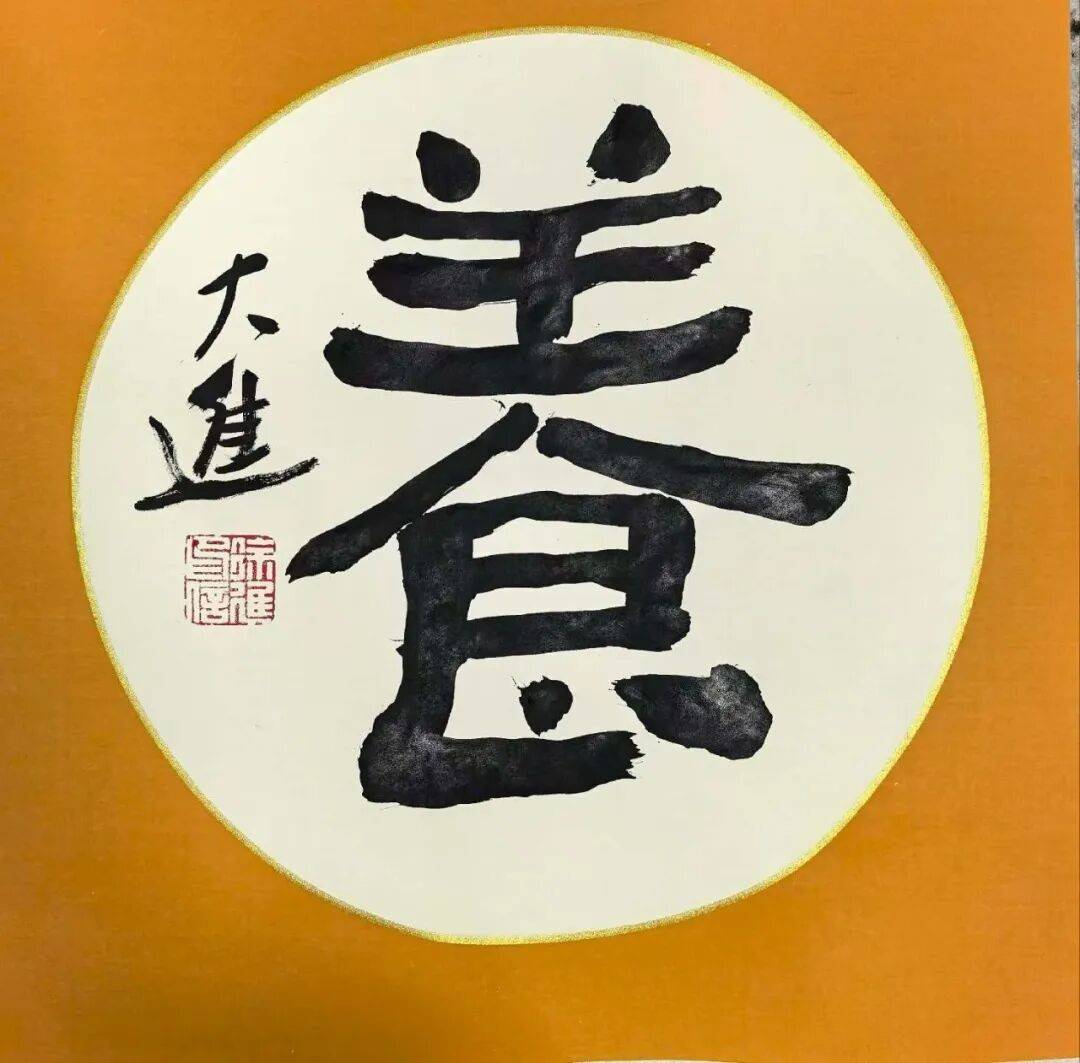 養
大進